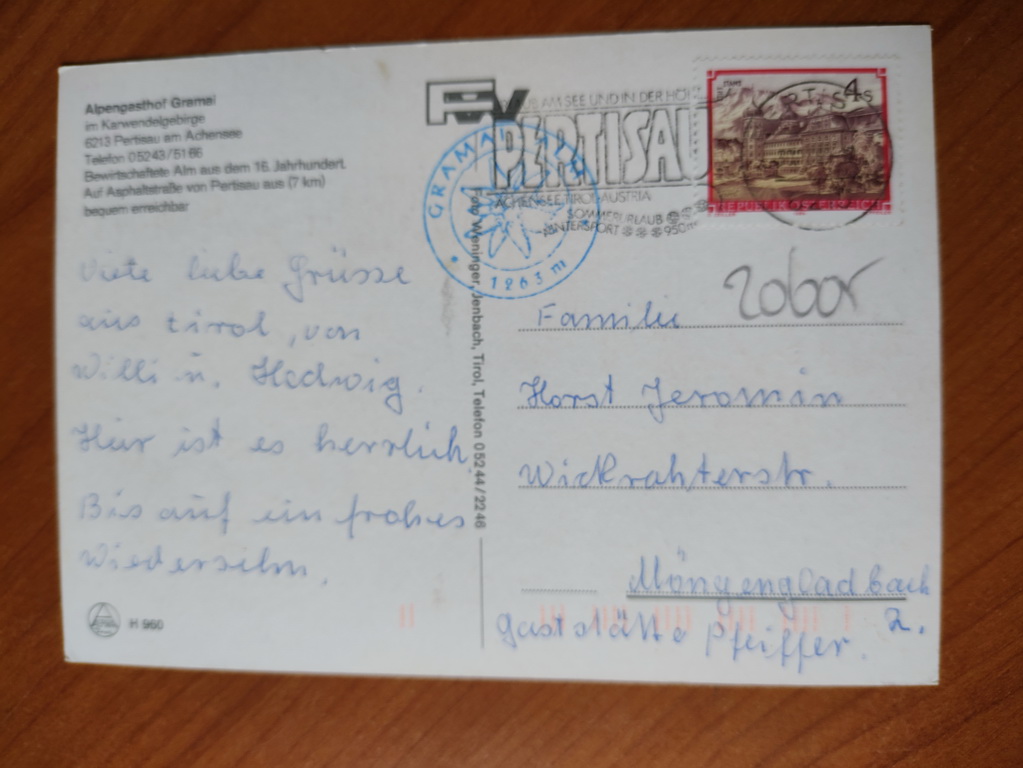 Alpengasthof Gramai
im Karwendelgebirge
6213 Pertisau am Achensee
Telefon 05243/5166
Bewirtschaftete Alm aus dem 16. Jahrhundert.
Auf Asphaltstraße von Pertisau aus (7 km)
bequem erreichbar
Viele liebe Grüsse
aus Tirol, von
Willi u. Hedwig.
Hier ist es herrlich.
Bis auf ein frohes
Wiedersehn.
H 960
Foto Weninger, Jenbach, Tirol, Telefon 05244/2246
GRAMAI ALM
1263 m
AM SEE UND IN DER
PERTISAU
ACHENSEE, TIROL-AUSTRIA
SOMMERURLAUB
WINTERSPORT 950m
4
STIFT
REPUBLIK ÖSTERREICH
Familie
Horst Jeromin
Wickrahterstr.
Möngengladbach
2.
Gaststätte Pfeiffer.